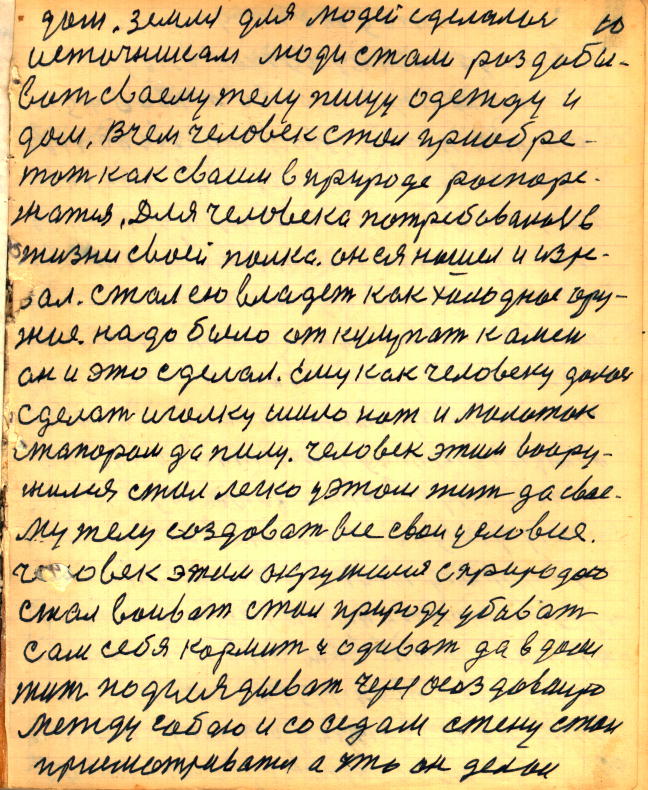 дом. Земля для людей сделалая 10
источникам люди стали роздобы-
ват своему телу пищу одежду и
дом, Вчем человек стал приобре-
тат как сваим в природе роспоре-
жатся, Для человека потребывалас в
жизни своей палка. он ея нашел и изре-
зал. стал ею владет как халодное ору-
жие. надо было откулупат камен
он и это сделал. ему как человеку далося
сделат иголку шило нож и малаток
стапором да пилу. человек этим воору-
жился стал легко уэтом жит да свое-
му телу создоват все свои условие.
человек этим окружился сприродою
стал воиват стал природу убиват
сам себя кормит и одиват да в доми
жит подглядыват через создованую
между собою и соседам стену стал
присмотриватся а что он делал